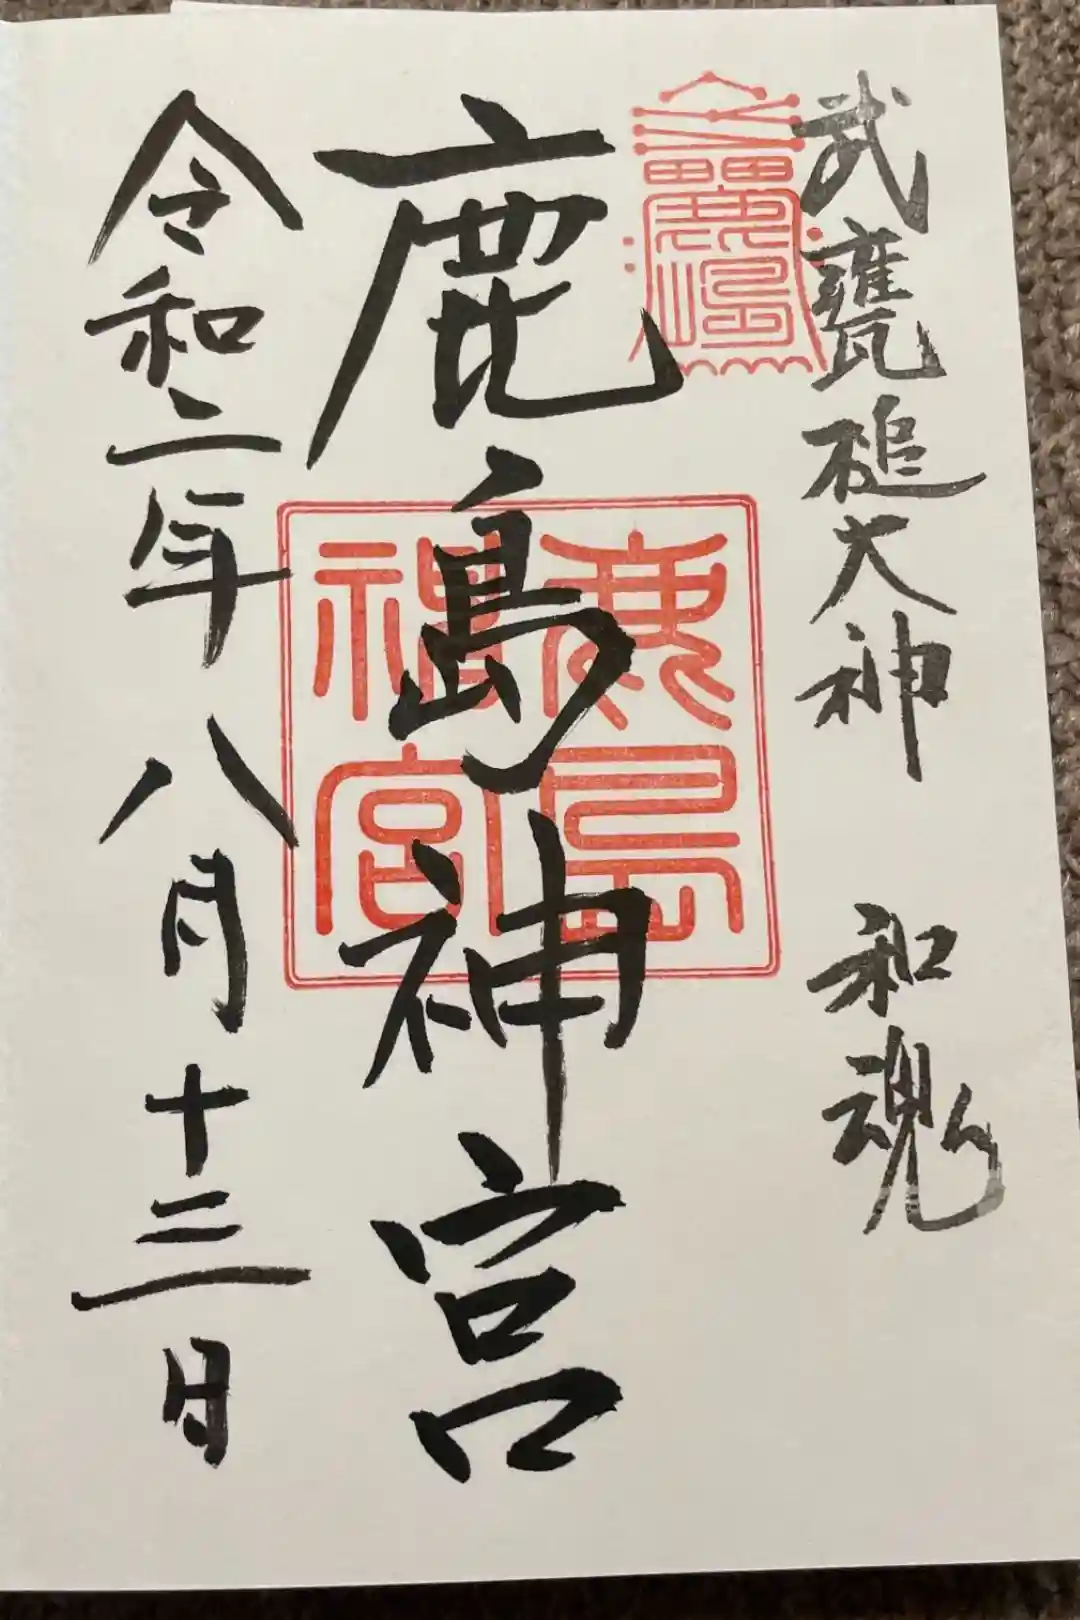 武甕槌大神 和魂
鹿島神宮
鹿島神宮
令和二年八月十三日